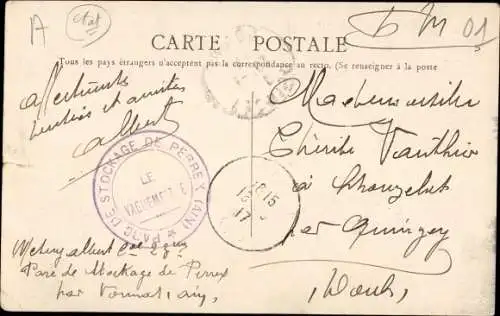 A
D M 01
CARTE POSTALE
Tous les pays étrangers n'acceptent pas la correspondance au recto. (Se renseigner à la poste
affectueuses
et amitiés
Albert
Mademoiselle
Vauthier
à Chouzelot
par Quingey
Doubs
PARC DE STOCKAGE DE PERREX (AIN)
LE
VAGUEMESTRE
18 15
13
17
Albert
Parc de Stockage de Perrex
par Vonnas, Ain,